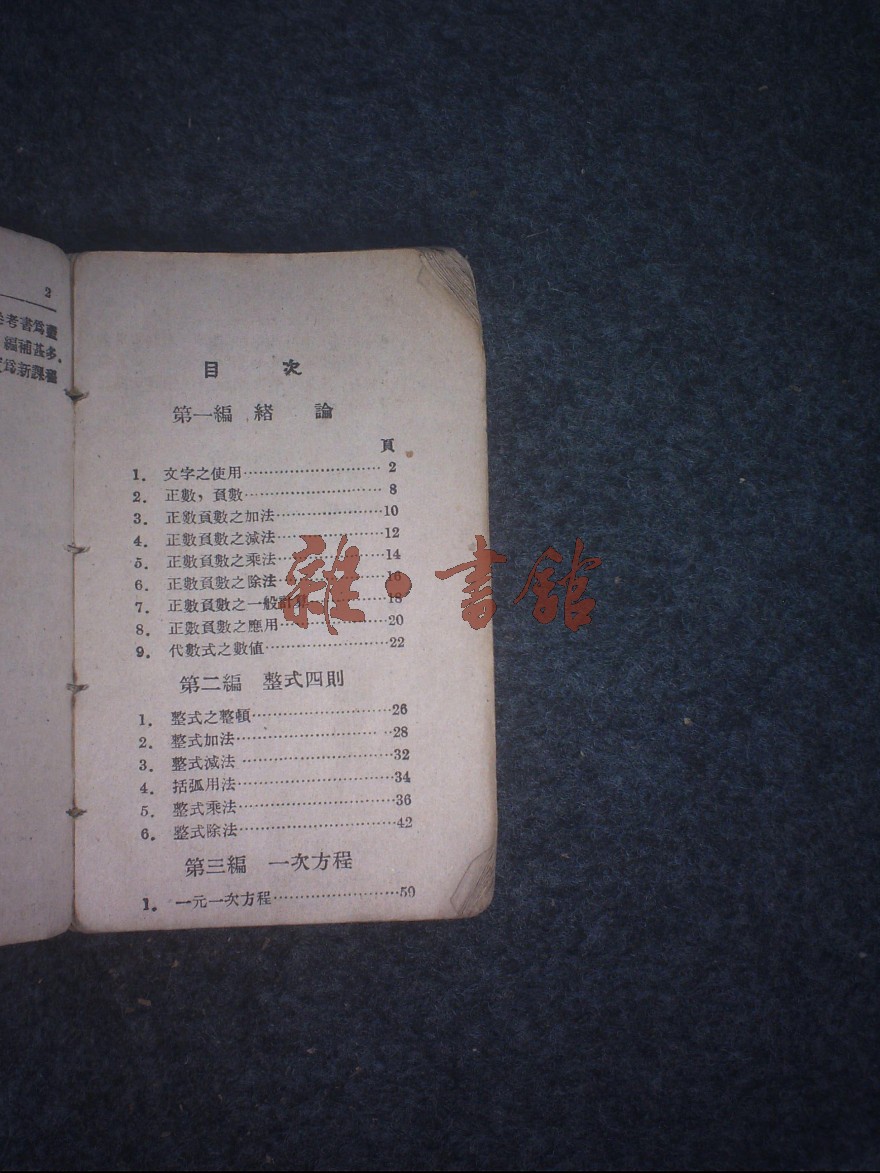 2
考書爲
編補甚多.
爲新課
目 次
第一編 緒 論
頁
1. 文字之使用……………………… 2
2. 正數，頁數……………………… 8
3. 正數頁數之加法…………………10
4. 正數頁數之減法…………………12
5. 正數頁數之乘法…………………14
6. 正數頁數之除法…………………16
7. 正數頁數之一般計算……………18
8. 正數頁數之應用…………………20
9. 代數式之數値……………………22
雜·書館
第二編 整式四則
1. 整式之整頓………………………26
2. 整式加法…………………………28
3. 整式減法…………………………32
4. 括弧用法…………………………34
5. 整式乘法…………………………36
6. 整式除法…………………………42
第三編 一次方程
1. 一元一次方程……………………50